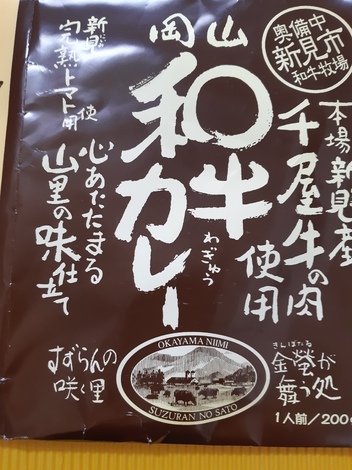 岡山
和牛
カレー
わぎゅう
奥備中
新見市
和牛牧場
本場新見産
千屋牛の肉
使用
新見
完熟トマト使用
心あたたまる
山里の味仕立て
OKAYAMA NIIMI
SUZURAN NO SATO
すずらんの
咲く里
きんぼたる
金螢が
舞う処
1人前/200g